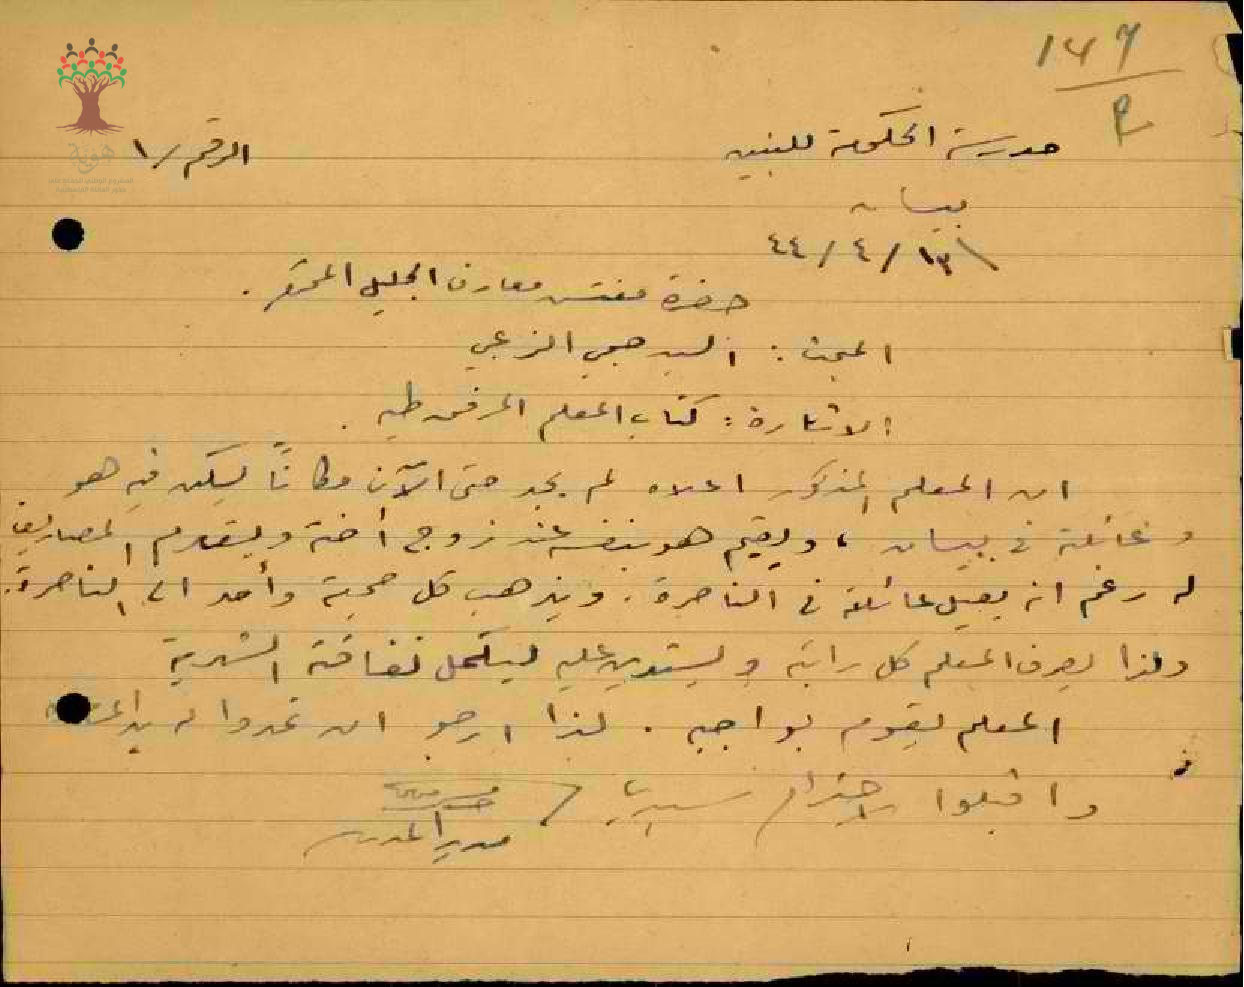 ١٤٦
م
مدرسة الحكومة للبنين
الرقم /١
بيسان
١٣ / ٤ / ٤٤
حضرة مفتش معارف الجليل المحترم .
المبحث : السيد صبحي الزعبي
الاشارة : كتاب المعلم المرفق طيه .
ان المعلم المذكور اعلاه لم يجد حتى الآن مكاناً يسكن فيه هو
وعائلته في بيسان ، ويقيم هو بنفسه عند زوج أخته ويقدم المصاريف
له رغم انه يعيل عائلة في الناصرة . ويذهب كل جمعة وأحد الى الناصرة .
ولذا يصرف المعلم كل راتبه ويستدين عليه ليكمل نفقاته الشهرية
المعلم يقوم بواجبه . لذا ارجو ان تمدوا له يد
واقبلوا الاحترام سيدي /
مدير المدرسة
هوية